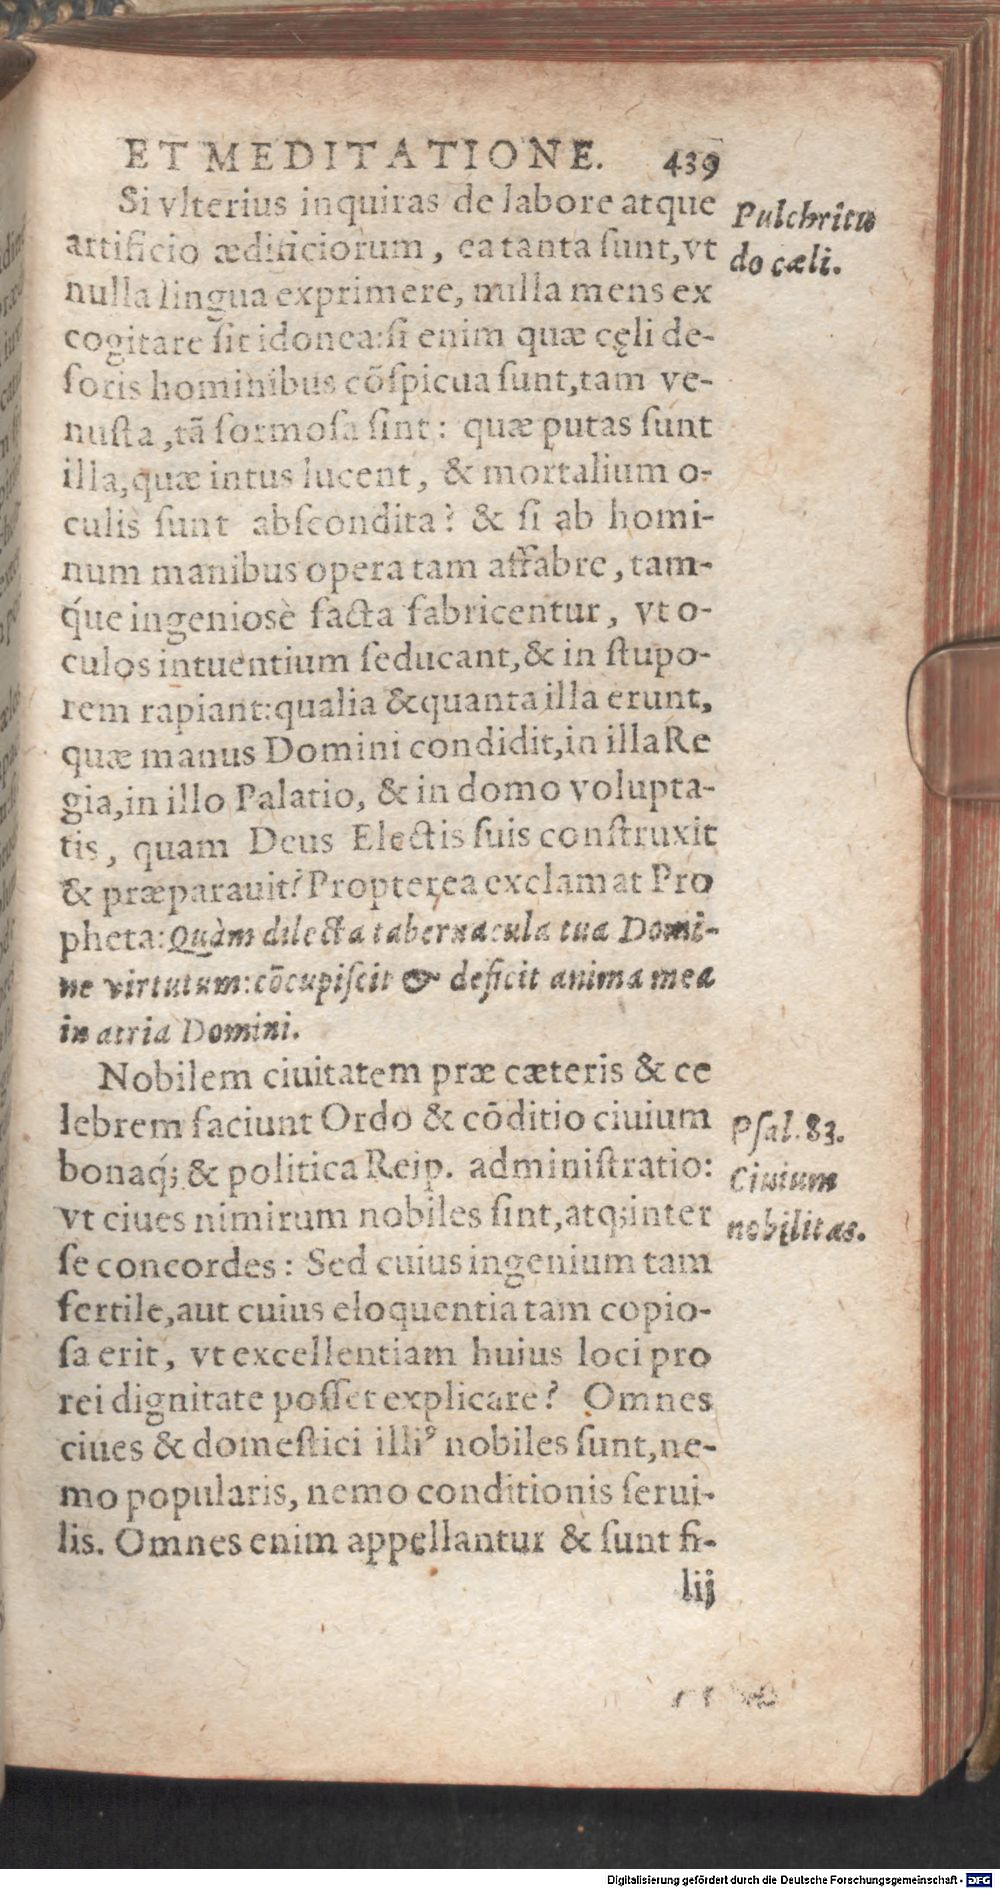 ET MEDITATIONE. 439
Si vlterius inquiras de labore atque
artificio ædificiorum, ea tanta sunt, vt
nulla lingua exprimere, nulla mens ex
cogitare sit idonea: si enim quæ cęli de-
foris hominibus cōspicua sunt, tam ve-
nusta, tā formosa sint: quæ putas sunt
illa, quæ intus lucent, & mortalium o-
culis sunt abscondita? & si ab homi-
num manibus opera tam affabre, tam-
q́ue ingeniosè facta fabricentur, vt o-
culos intuentium seducant, & in stupo-
rem rapiant: qualia & quanta illa erunt,
quæ manus Domini condidit, in illa Re
gia, in illo Palatio, & in domo volupta-
tis, quam Deus Electis suis construxit
& præparauit? Propterea exclamat Pro
pheta: Quàm dilecta tabernacula tua Domi-
ne virtutum: cōcupiscit & deficit anima mea
in atria Domini.
Nobilem ciuitatem præ cæteris & ce
lebrem faciunt Ordo & cōditio ciuium
bonaq́; & politica Reip. administratio:
vt ciues nimirum nobiles sint, atq; inter
se concordes: Sed cuius ingenium tam
fertile, aut cuius eloquentia tam copio-
sa erit, vt excellentiam huius loci pro
rei dignitate posset explicare? Omnes
ciues & domestici illiꝰ nobiles sunt, ne-
mo popularis, nemo conditionis serui-
lis. Omnes enim appellantur & sunt fi-
lij
Pulchritu
do cæli.
Psal. 83.
Ciuium
nobilitas.
Digitalisierung gefördert durch die Deutsche Forschungsgemeinschaft - DFG